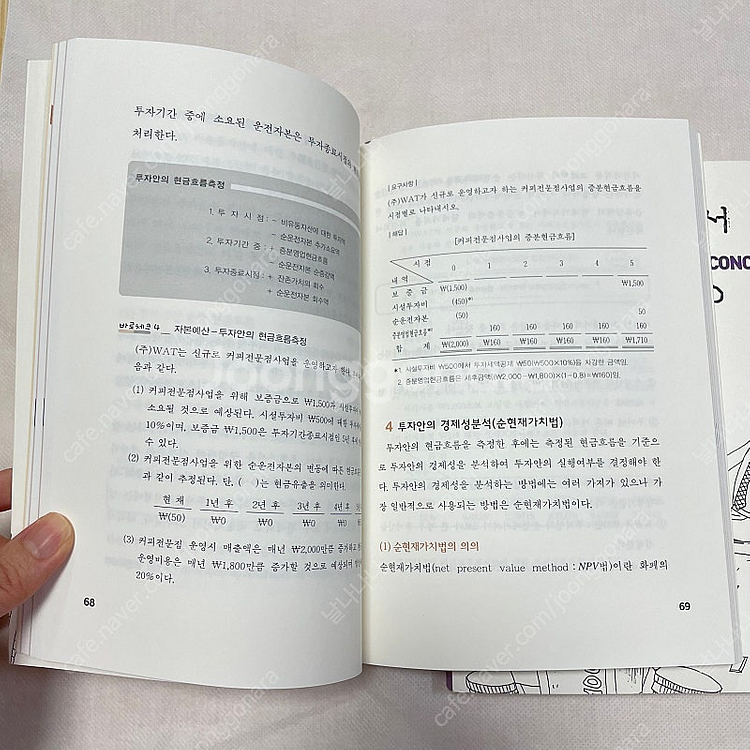 투자기간 중에 소요된 운전자본은 투자종료시점에
처리한다.
투자안의 현금흐름측정
1. 투 자 시 점 : - 비유동자산에 대한 투자액
- 순운전자본 추가소요액
2. 투자기간 중 : + 증분영업현금흐름
- 순운전자본 순증감액
3. 투자종료시점 : + 잔존가치의 회수
+ 순운전자본 회수액
바로체크 4 자본예산-투자안의 현금흐름측정
(주)WAT는 신규로 커피전문점사업을 운영하고자 한다.
음과 같다.
(1) 커피전문점사업을 위해 보증금으로 ₩1,500과 시설투자
소요될 것으로 예상된다. 시설투자비 ₩500에 대한
10%이며, 보증금 ₩1,500은 투자기간종료시점인 5년
수 있다.
(2) 커피전문점사업을 위한 순운전자본의 변동에 따른 현금
과 같이 추정된다. 단, ( )는 현금유출을 의미한다.
현 재 1년 후 2년 후 3년 후 4년 후
₩(50) ₩0 ₩0 ₩0 ₩0
(3) 커피전문점 운영시 매출액은 매년 ₩2,000만큼 증가하고
운영비용은 매년 ₩1,800만큼 증가할 것으로 예상되며
20%이다.
68
| 요구사항 |
(주)WAT가 신규로 운영하고자 하는 커피전문점사업의 증분현금흐름을
시점별로 나타내시오.
| 해답 |
[커피전문점사업의 증분현금흐름]
시 점
내 역 0 1 2 3 4 5
보 증 금 ₩(1,500) ₩1,500
시설투자비 (450)*¹
순운전자본 (50) 50
증분영업현금흐름*² 160 160 160 160 160
합 계 ₩(2,000) ₩160 ₩160 ₩160 ₩160 ₩1,710
*1. 시설투자비 ₩500에서 투자세액공제 ₩50(₩500×10%)을 차감한 금액임.
2. 증분영업현금흐름은 세후금액{(₩2,000-₩1,800)×(1-0.8)=₩160}임.
4 투자안의 경제성분석(순현재가치법)
투자안의 현금흐름을 측정한 후에는 측정된 현금흐름을 기준으
로 투자안의 경제성을 분석하여 투자안의 실행여부를 결정해야 한
다. 투자안의 경제성을 분석하는 방법에는 여러 가지가 있으나 가
장 일반적으로 사용되는 방법은 순현재가치법이다.
(1) 순현재가치법의 의의
순현재가치법(net present value method : NPV법)이란 화폐의
69
서
CONC
joonggonara
cafe.naver.com/joonggonara